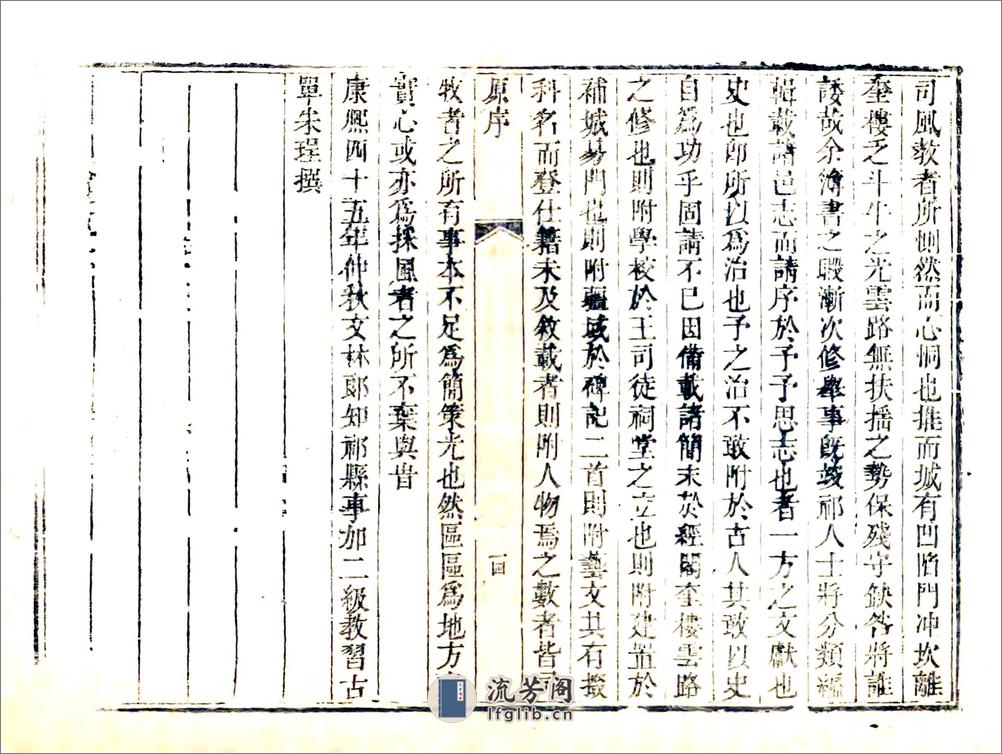 司風教者所惻然而心恫也推而城有凹陷門冲坎離
奎樓乏斗牛之光雲路無扶搖之勢保殘守缺咎將誰
諉哉余簿書之暇漸次修舉事旣竣祁人士將分類編
輯載諸邑志而請序於予予思志也者一方之文獻也
史也卽所以爲治也予之治不敢附於古人其敢以史
自爲功乎固請不已因備載諸簡末於經閣奎樓雲路
之修也則附學校於王司徒祠堂之立也則附建置於
補城易門也則附疆域於碑記二首則附藝文其有掇
科名而登仕籍未及敘載者則附人物焉之數者皆司
原序
一四
牧者之所有事本不足爲簡策光也然區區爲地方之
實心或亦爲採風者之所不棄與旹
康熙四十五年仲秋文林郞知祁縣事加二級教習古
單朱珵撰
流芳阁
lfglib.cn